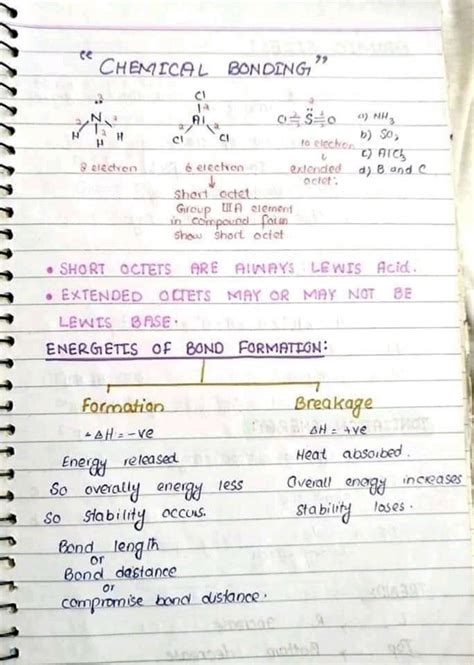 “CHEMICAL BONDING”
N
H H H
8 electron
Cl
Al
Cl Cl
6 electron
short octet
Group III A element
in compound form
show short octet
O S O
10 electron
extended
octet:
a) NH3
b) SO2
c) AlCl3
d) B and C
• SHORT OCTETS ARE AlWAYS LEWIS Acid.
• EXTENDED OCTETS MAY OR MAY NOT BE
LEWIS BASE.
ENERGETIS OF BOND FORMATION:
Formation
- ΔH = -ve
Energy released
So overally energy less
So stability accurs.
Bond length
or
Bond dastance
or
compromise band distance.
Breakage
ΔH = +ve
Heat absolbed.
Overall energy increases
Stability loses.